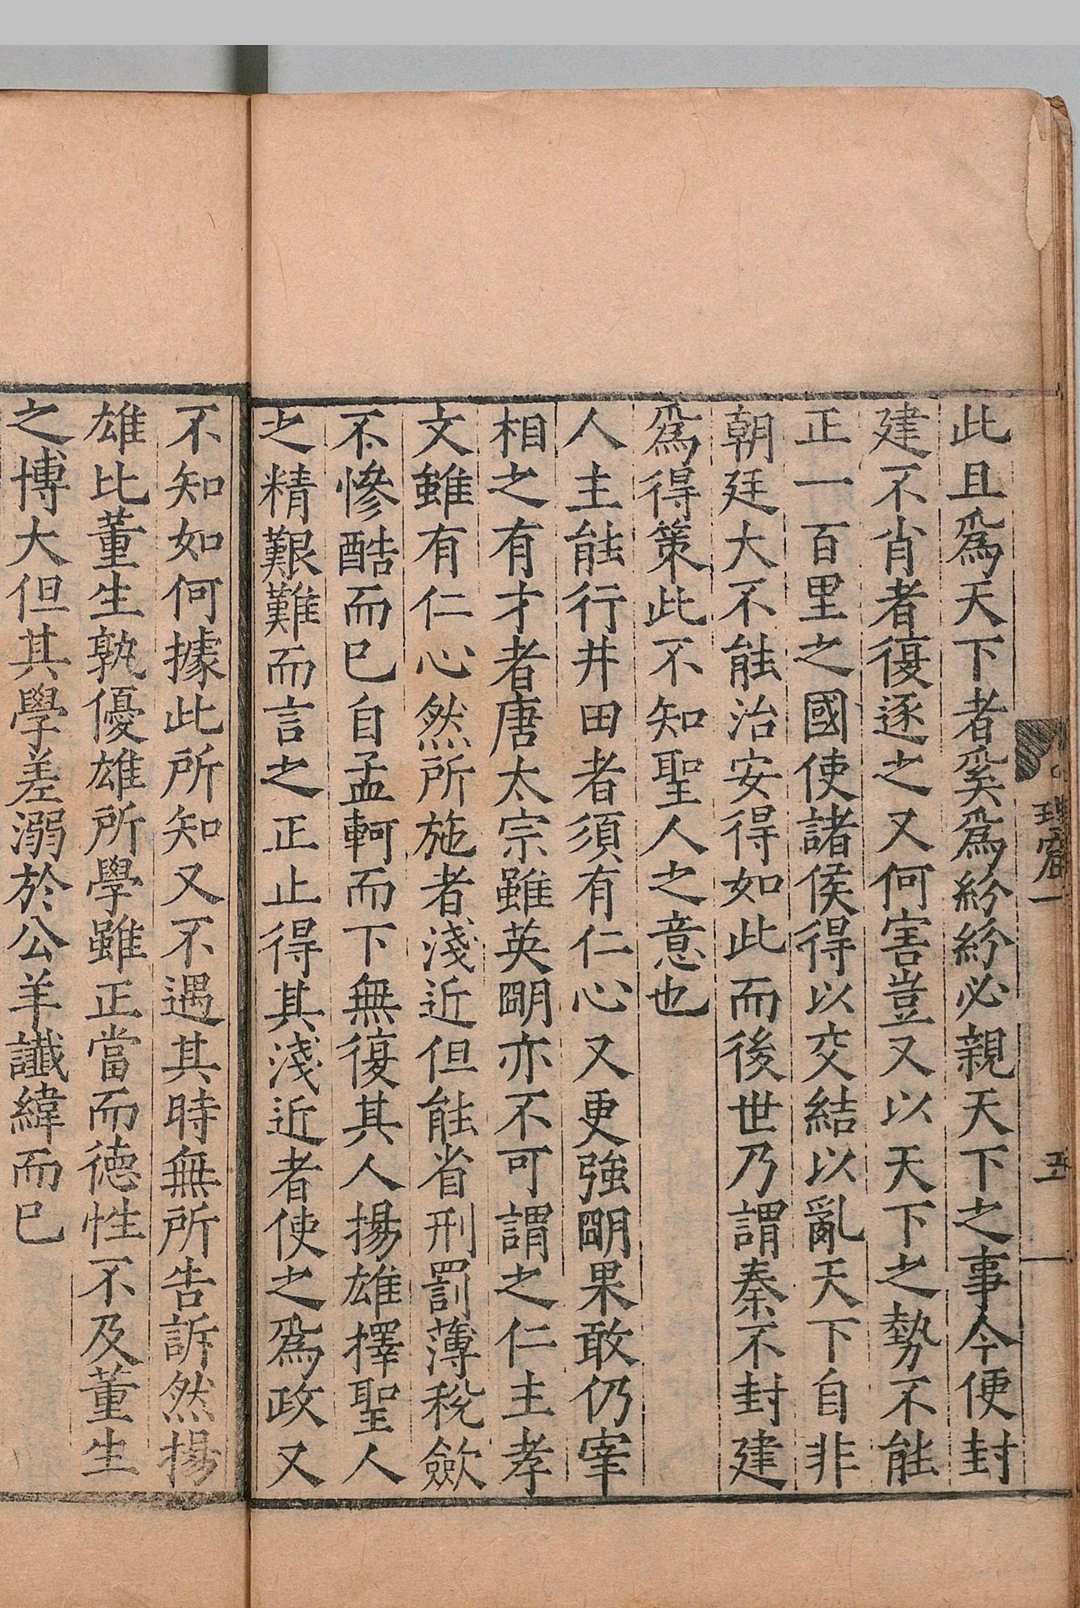 理窟一
五
此且爲天下者奚爲紛紛必親天下之事今便封
建不肖者復逐之又何害豈又以天下之勢不能
正一百里之國使諸侯得以交結以亂天下自非
朝廷大不能治安得如此而後世乃謂秦不封建
爲得策此不知聖人之意也
人主能行井田者須有仁心又更強明果敢仍宰
相之有才者唐太宗雖英明亦不可謂之仁主孝
文雖有仁心然所施者淺近但能省刑罰薄稅歛
不慘酷而已自孟軻而下無復其人揚雄擇聖人
之精艱難而言之正止得其淺近者使之爲政又
不知如何據此所知又不遇其時無所告訴然揚
雄比董生孰優雄所學雖正當而德性不及董生
之博大但其學差溺於公羊讖緯而已